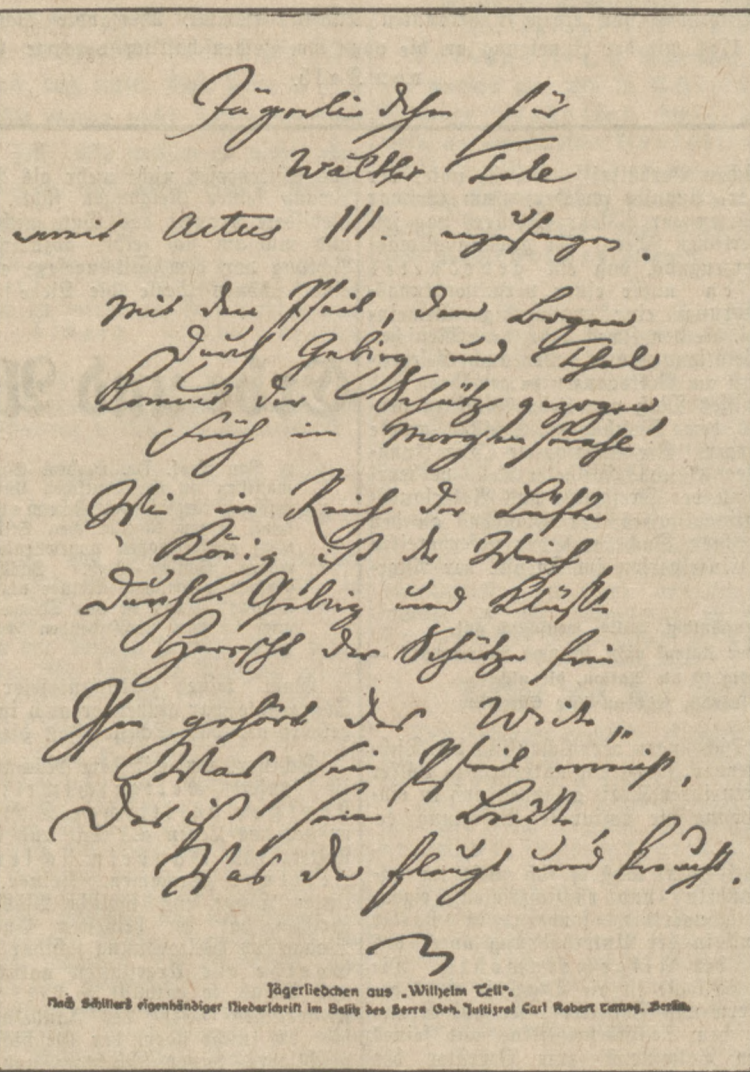 Jägerliedchen für
Walther Tell
Actus III. anzufangen.
Mit dem Pfeil, dem Bogen
Durch Gebirg und Thal
Kommt der Schütz gezogen,
Früh im Morgenstrahl
Wie im Reich der Lüfte
König ist der Weih,
Durch Gebirg und Klüfte
Herrscht der Schütze frei
Ihm gehört das Weite,
Was sein Pfeil erreicht,
Das ist seine Beute,
Was da fleugt und kreucht.
Jägerliedchen aus „Wilhelm Tell“.
Nach Schillers eigenhändiger Niederschrift im Besitz des Herrn Geh. Justizrat Carl Robert Lessing, Berlin.